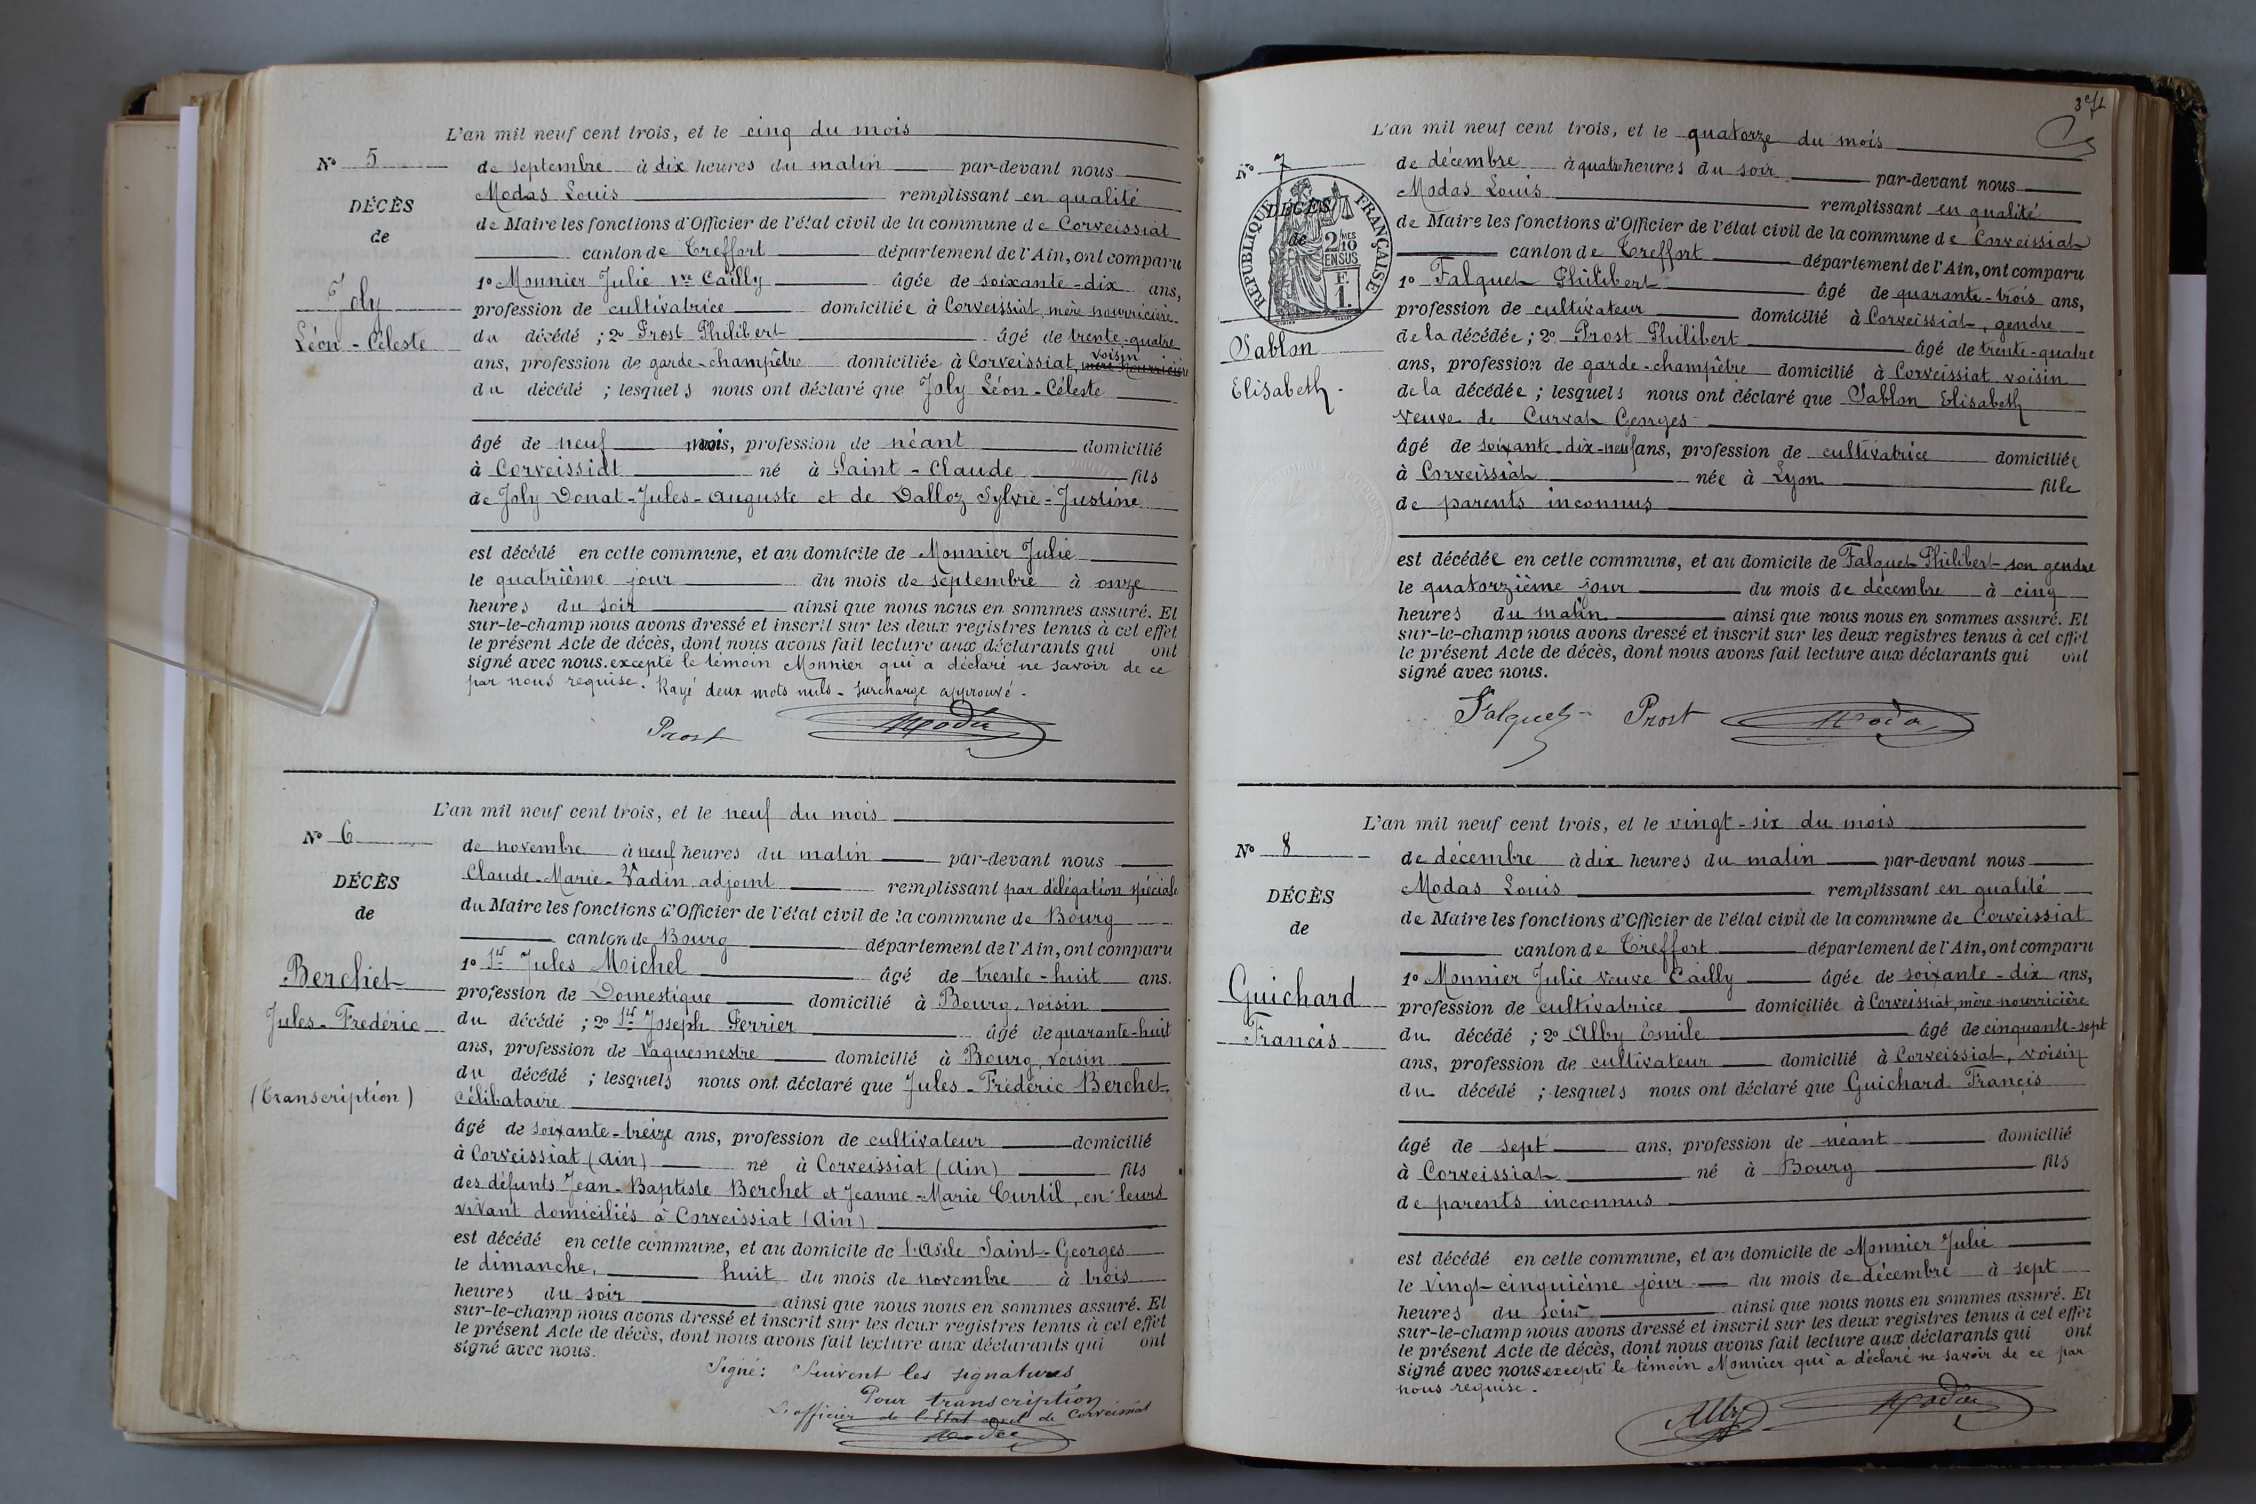 L'an mil neuf cent trois, et le cinq du mois
N° 5
de septembre à dix heures du matin par-devant nous
Modas Louis remplissant en qualité
DÉCÈS
de Maire les fonctions d'Officier de l'état civil de la commune de Corveissiat
de
canton de Treffort département de l'Ain, ont comparu
1° Monnier Julie Vve Cailly âgée de soixante-dix ans,
Joly
profession de cultivatrice domiciliée à Corveissiat, mère nourricière
Léon-Céleste
du décédé ; 2° Prost Philibert âgé de trente-quatre
ans, profession de garde-champêtre domiciliée à Corveissiat, voisin mère nourricière
du décédé ; lesquels nous ont déclaré que Joly Léon-Céleste
âgé de neuf mois, profession de néant domicilié
à Corveissiat né à Saint-Claude fils
de Joly Donat-Jules-Auguste et de Dalloz Sylvie-Justine
est décédé en cette commune, et au domicile de Monnier Julie
le quatrième jour du mois de septembre à onze
heures du soir ainsi que nous nous en sommes assuré. Et
sur-le-champ nous avons dressé et inscrit sur les deux registres tenus à cet effet
le présent Acte de décès, dont nous avons fait lecture aux déclarants qui ont
signé avec nous. excepté le témoin Monnier qui a déclaré ne savoir de ce
par nous requise. Rayé deux mots nuls - surcharge approuvé.
Prost Modas
L'an mil neuf cent trois, et le neuf du mois
N° 6
de novembre à neuf heures du matin par-devant nous
Claude-Marie-Vadin adjoint remplissant par délégation spéciale
DÉCÈS
du Maire les fonctions d'Officier de l'état civil de la commune de Bourg
de
canton de Bourg département de l'Ain, ont comparu
Berchet
1° Sr Jules Michel âgé de trente-huit ans.
profession de Domestique domicilié à Bourg, voisin
Jules-Frédéric
du décédé ; 2° Sr Joseph Perrier âgé de quarante-huit
ans, profession de Vaguemestre domicilié à Bourg, voisin
du décédé ; lesquels nous ont déclaré que Jules-Frédéric Berchet,
(Transcription)
célibataire
âgé de soixante-treize ans, profession de cultivateur domicilié
à Corveissiat (Ain) né à Corveissiat (Ain) fils
des défunts Jean-Baptiste Berchet et Jeanne-Marie Curtil, en leurs
vivant domiciliés à Corveissiat (Ain)
est décédé en cette commune, et au domicile de l'Asile Saint-Georges
le dimanche, huit du mois de novembre à trois
heures du soir ainsi que nous nous en sommes assuré. Et
sur-le-champ nous avons dressé et inscrit sur les deux registres tenus à cet effet
le présent Acte de décès, dont nous avons fait lecture aux déclarants qui ont
signé avec nous.
Signé : Suivent les signatures
Pour transcription
L'officier de l'Etat civil de Corveissiat
Modas
L'an mil neuf cent trois, et le quatorze du mois
N° 7
de décembre à quatre heures du soir par-devant nous
Modas Louis remplissant en qualité
DÉCÈS
de Maire les fonctions d'Officier de l'état civil de la commune de Corveissiat
de
RÉPUBLIQUE FRANÇAISE
2/10 MES
EN SUS
F.
1.
canton de Treffort département de l'Ain, ont comparu
1° Falquet Philibert âgé de quarante-trois ans,
profession de cultivateur domicilié à Corveissiat, gendre
Sablon
de la décédée ; 2° Prost Philibert âgé de trente-quatre
ans, profession de garde-champêtre domicilié à Corveissiat voisin
Elisabeth.
de la décédée ; lesquels nous ont déclaré que Sablon Elisabeth
veuve de Curvat Georges
âgé de soixante-dix-neuf ans, profession de cultivatrice domiciliée
à Corveissiat née à Lyon fille
de parents inconnus
est décédée en cette commune, et au domicile de Falquet Philibert son gendre
le quatorzième jour du mois de décembre à cinq
heures du matin ainsi que nous nous en sommes assuré. Et
sur-le-champ nous avons dressé et inscrit sur les deux registres tenus à cet effet
le présent Acte de décès, dont nous avons fait lecture aux déclarants qui ont
signé avec nous.
Falquet Prost Modas
L'an mil neuf cent trois, et le vingt-six du mois
N° 8
de décembre à dix heures du matin par-devant nous
Modas Louis remplissant en qualité
DÉCÈS
de Maire les fonctions d'Officier de l'état civil de la commune de Corveissiat
de
canton de Treffort département de l'Ain, ont comparu
1° Monnier Julie veuve Cailly âgée de soixante-dix ans,
Guichard
profession de cultivatrice domiciliée à Corveissiat, mère nourricière
Francis
du décédé ; 2° Alby Emile âgé de cinquante-sept
ans, profession de cultivateur domicilié à Corveissiat, voisin
du décédé ; lesquels nous ont déclaré que Guichard Francis
âgé de sept ans, profession de néant domicilié
à Corveissiat né à Bourg fils
de parents inconnus
est décédé en cette commune, et au domicile de Monnier Julie
le vingt-cinquième jour du mois de décembre à sept
heures du soir ainsi que nous nous en sommes assuré. Et
sur-le-champ nous avons dressé et inscrit sur les deux registres tenus à cet effet
le présent Acte de décès, dont nous avons fait lecture aux déclarants qui ont
signé avec nous excepté le témoin Monnier qui a déclaré ne savoir de ce par
nous requise.
Alby Modas